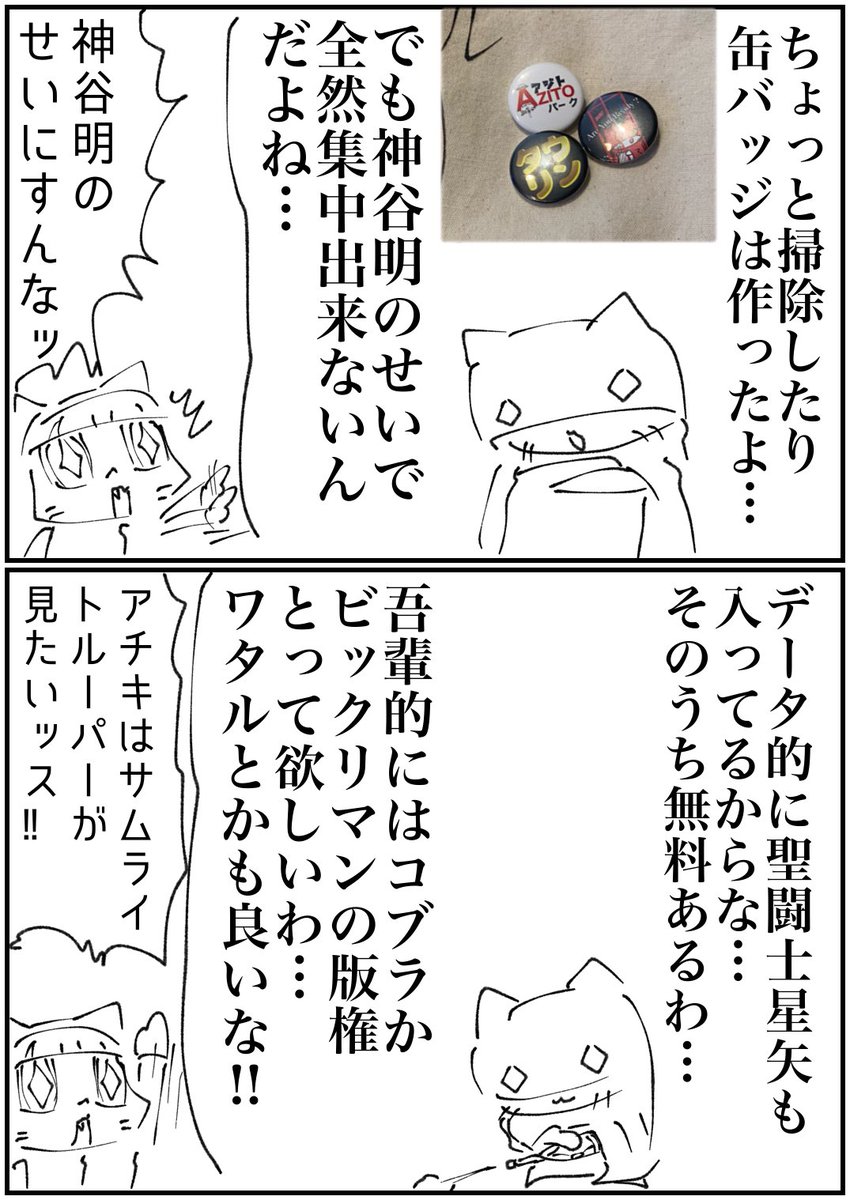 ちょっと掃除したり
缶バッジは作ったよ…
アジト
AZITO
パーク
タウリン
でも神谷明のせいで
全然集中出来ないん
だよね…
神谷明の
せいにすんなッ
データ的に聖闘士星矢も
入ってるからな…
そのうち無料あるわ…
吾輩的にはコブラか
ビックリマンの版権
とって欲しいわ…
ワタルとかも良いな!!
アチキはサムライ
トルーパーが
見たいッス!!